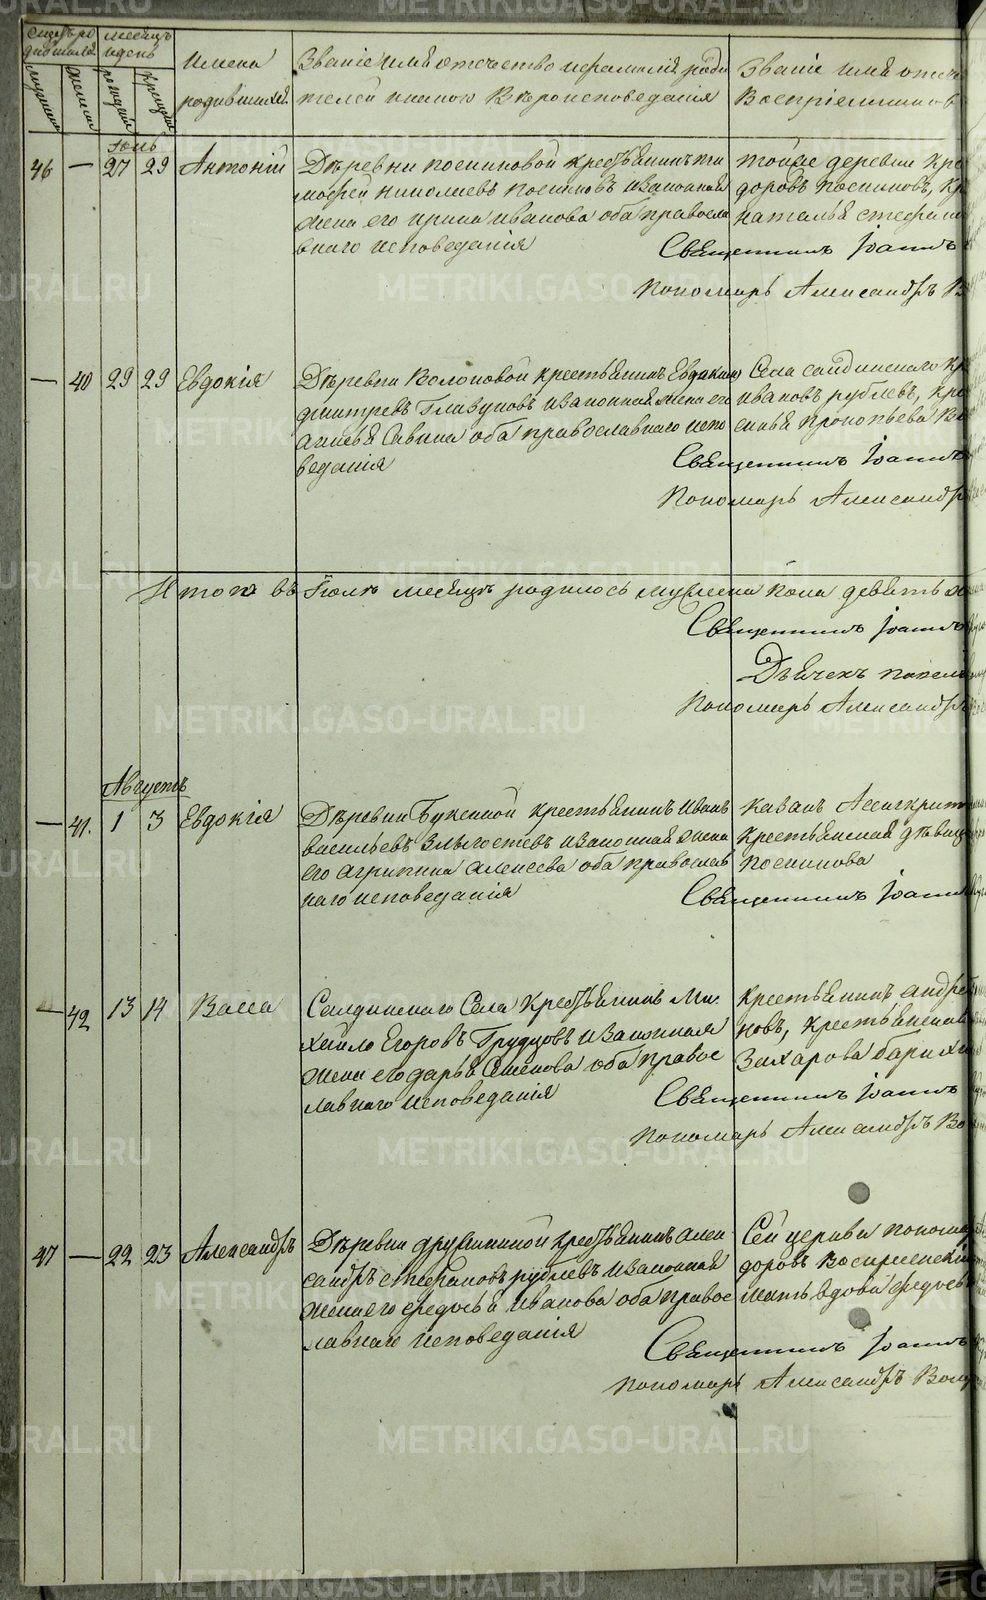 Счетъ ро
дившихся
мѣсяцъ
и день
мужска
женска
рожденія
крещенія
Имена
родившихся
Званіе имя отечество и фамилія роди
телей и какого вѣроисповеданія
Званіе имя отече
Воспріемников
Іюль
46 — 27 29 Антоній
Деревни Посниковой крестьянинъ ти
мофей николаевъ Посниковъ и законная
жена его ирина иванова оба правосла
внаго исповеданія
тойже деревни кре
доровъ посниковъ, кр
наталья стефано
Священникъ Іоаннъ
Пономарь Александръ В
— 40 29 29 Евдокія
Деревни Волоковой крестьянинъ Евдоким
дмитревъ Глазуновъ и законная жена его
Савина оба православнаго испо
веданія
Села салдинского кр
ивановъ рублевъ, кре
прокопьева
Священникъ Іоаннъ
Пономарь Александръ
Итого въ Іюлѣ месяцѣ родилось мужеска пола девять
Священникъ Іоаннъ
Дьячекъ
Пономарь Александръ
Августъ
— 41. 1 3 Евдокія
Деревни Буксиной крестьянинъ Иванъ
васильевъ и законная жена
его агрипина алексеева оба православ
наго исповеданія
крестьянская девица
Посникова
Священникъ Іоаннъ
— 42 13 14 Васса
Салдинского Села крестьянинъ Ми
хайло Егоровъ Грудцовъ и законная
жена его дарья Семенова оба правос
лавнаго исповеданія
крестьянинъ андре
новъ, крестьянская
Захарова
Священникъ Іоаннъ
Пономарь Александръ Во
47 — 22 23 Александръ
Деревни дружининой крестьянинъ алек
сандръ стефановъ рублевъ и законная
жена его федосья Иванова оба правос
лавнаго исповеданія
Сей церкви понома
доровъ Воскресенскій
мать вдова федось
Священникъ Іоаннъ
Пономарь Александръ Воск
METRIKI.GASO-URAL.RU